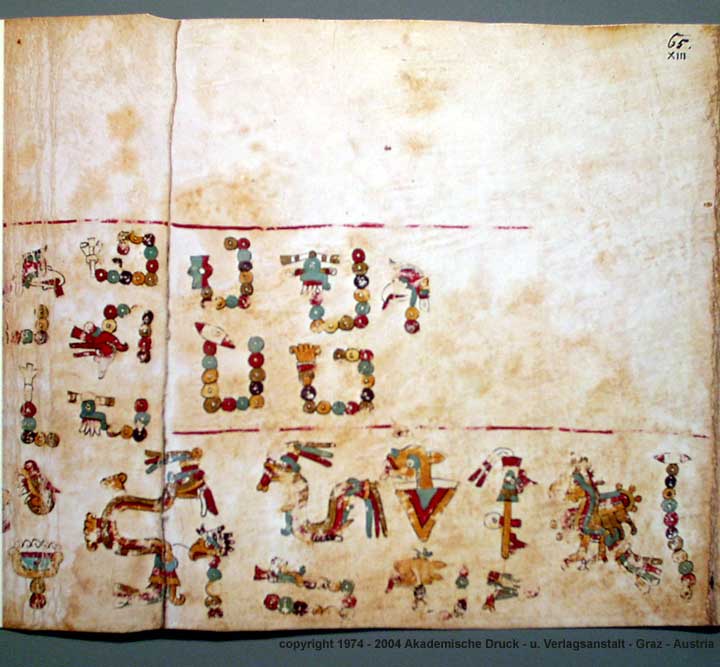 65.
XIII
copyright 1974 - 2004 Akademische Druck - u. Verlagsanstalt - Graz - Austria